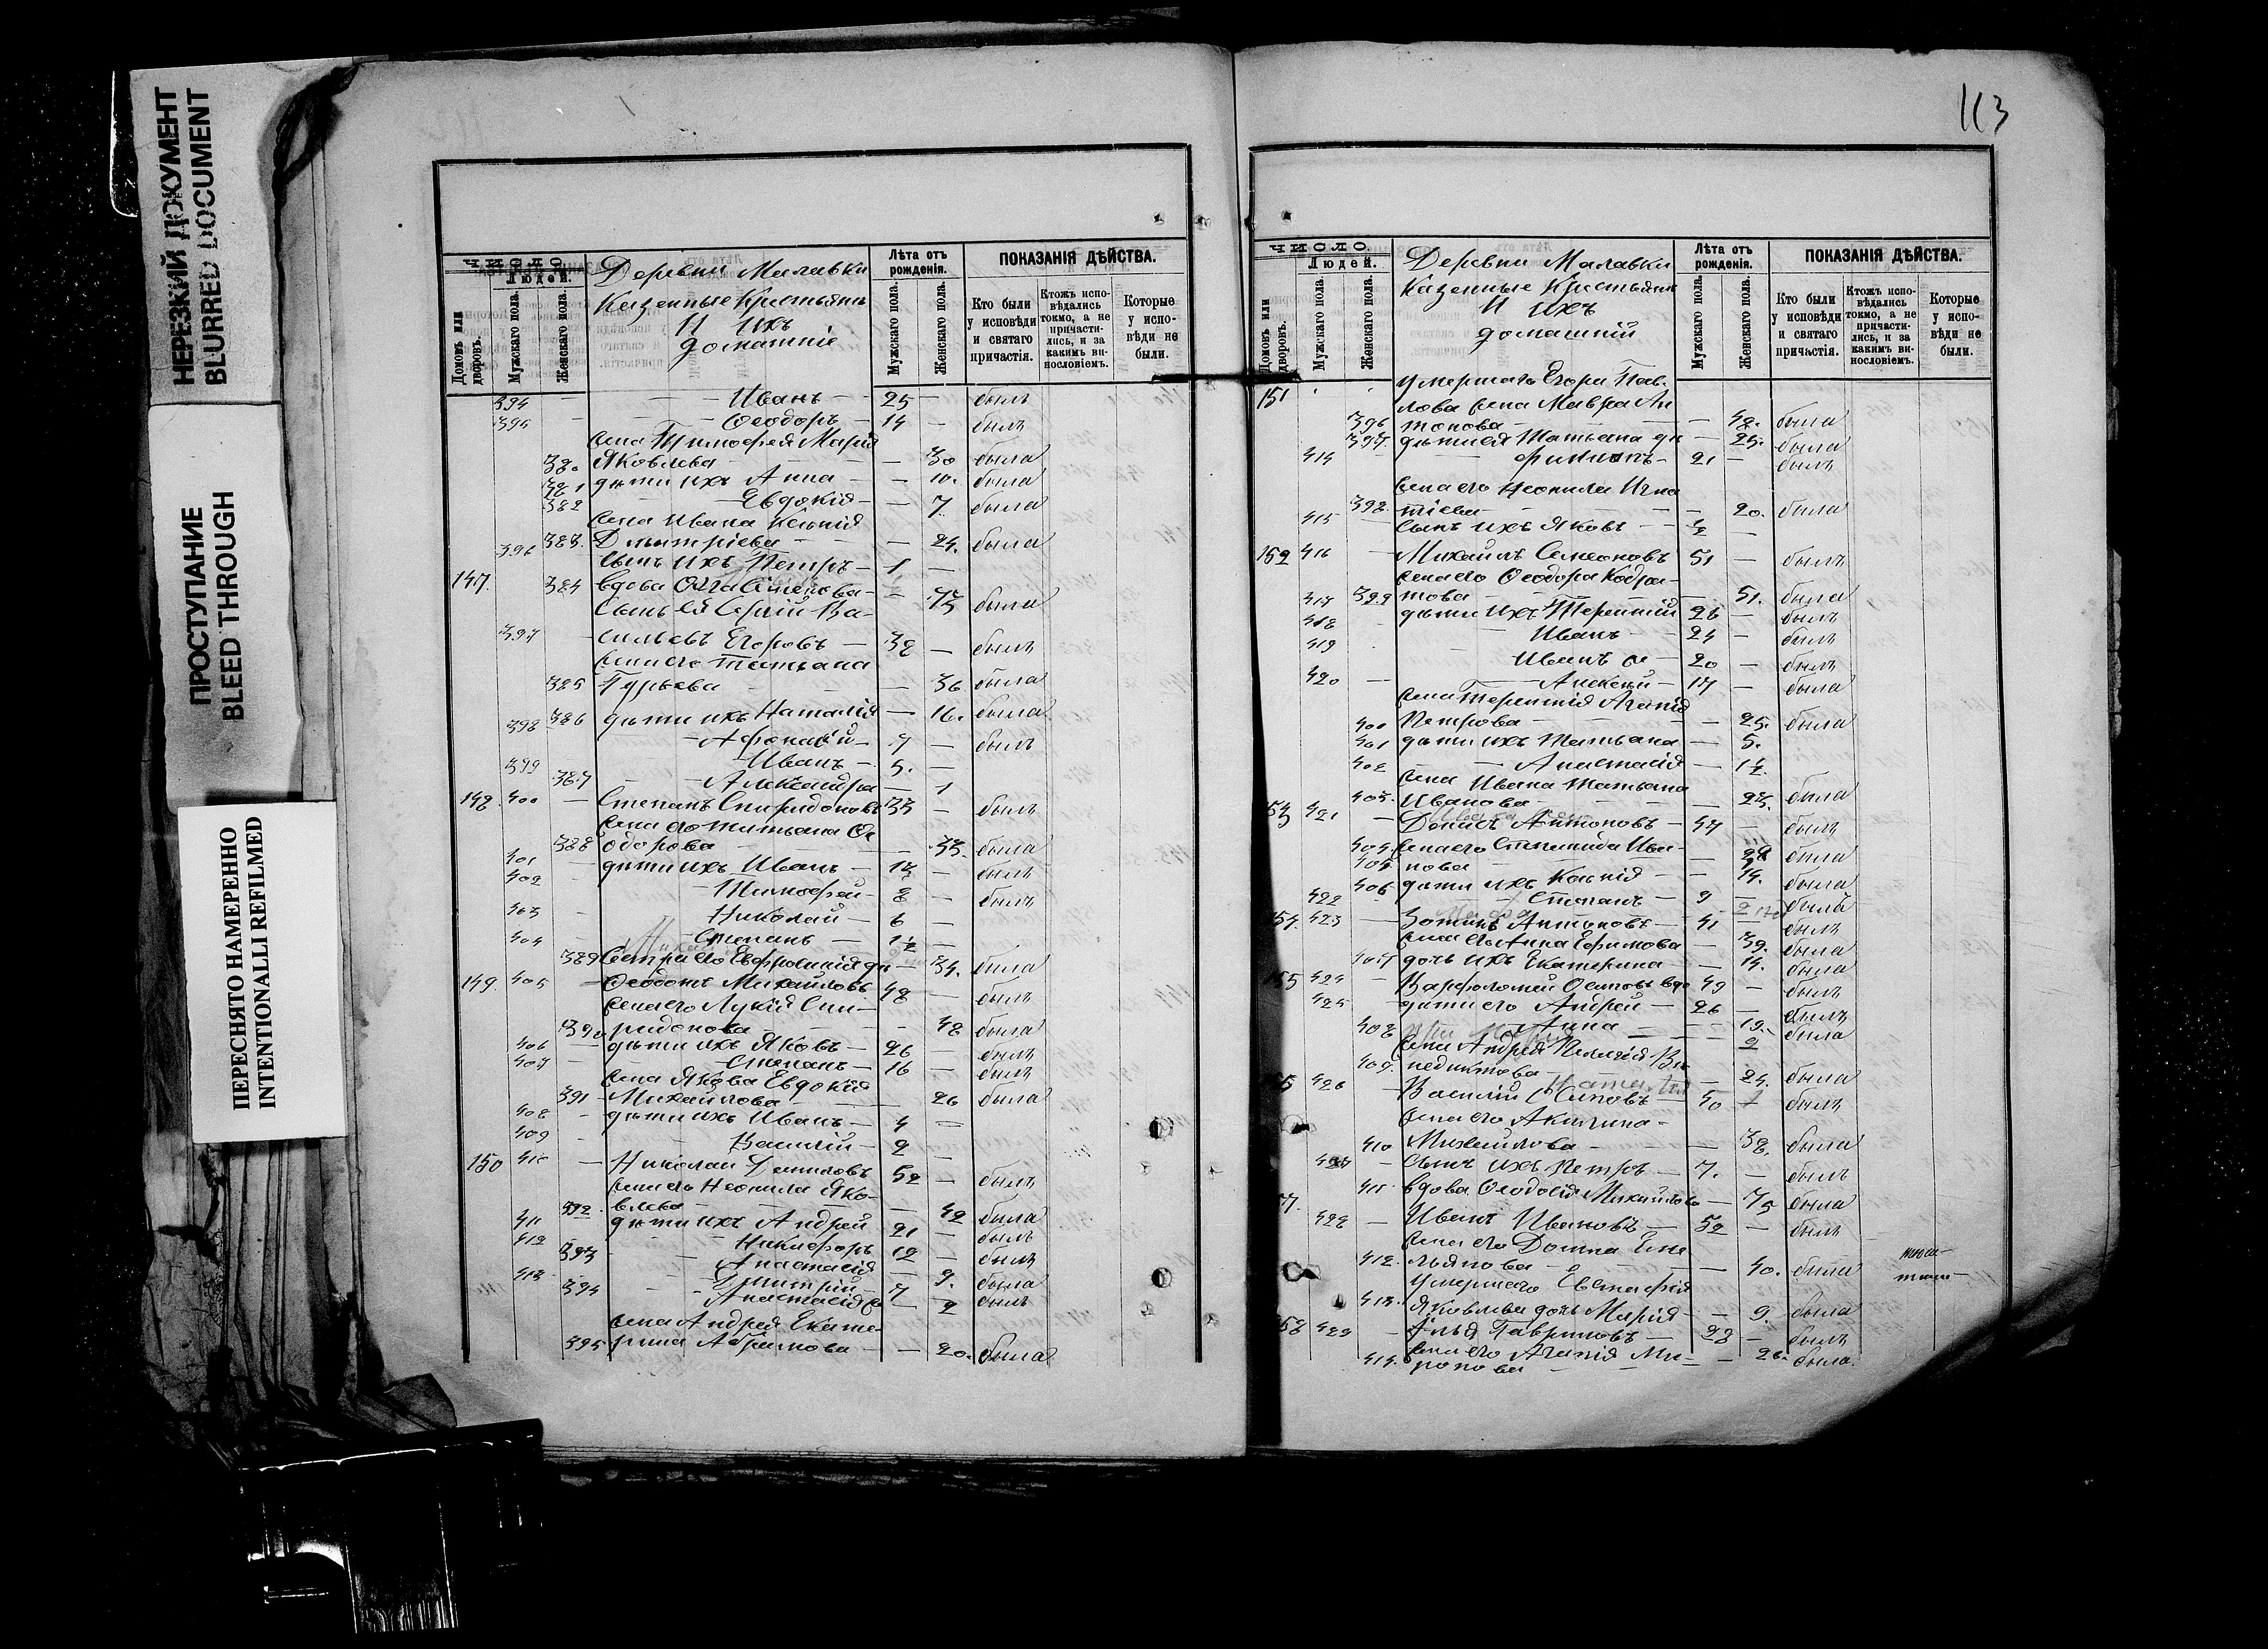 НЕРЕЗКИЙ ДОКУМЕНТ
BLURRED DOCUMENT
ПРОСТУПАНИЕ
BLEED THROUGH
ПЕРЕСНЯТО НАМЕРЕННО
INTENTIONALLI REFILMED
ЧИСЛО
Людей.
Домовъ или дворовъ.
Мужскаго пола.
Женскаго пола.
Деревни Малавки
Казенные Крестьяне
И ихъ
домашніе
Лѣта отъ рожденія.
Мужскаго пола.
Женскаго пола.
ПОКАЗАНІЯ ДѢЙСТВА.
Кто были у исповѣди и святаго причастія.
Ктожъ исповѣдались токмо, а не причастились, и за какимъ винословіемъ.
Которые у исповѣди не были.
394 Иванъ 25 былъ
395 Ѳеодоръ 14 былъ
Жена Тимоѳея Марія
380 Яковлева 30 была
381 дѣти ихъ Анна 10. была
382 Евдокія 7 была
Жена Ивана Ксенія
383. Дмитріева 24. была
396 Сынъ ихъ Петръ 1
147. 384 вдова 75 была
Сынъ ея Сергій Ва-
397 сильевъ Егоровъ 38 былъ
Жена его Татьяна
385 Гурьева 36 была
386 дѣти ихъ Наталія 16. была
398 Аѳонасій 9 былъ
399 Иванъ 5.
387 Александра 1
148 400 Степанъ Спиридоновъ 33 былъ
Жена его Татьяна Ѳе
388 одорова 33. была
401 дѣти ихъ Иванъ 13 былъ
402 Тимоѳей 8 былъ
403 Николай 6
404 Степанъ 1½
389 Сестра его Евфросинія 34. была
149. 405 Ѳеодотъ Михайловъ 48 былъ
Жена его Лукія Спи-
390 ридонова 48 была
406 дѣти ихъ Яковъ 26 былъ
407 Степанъ 16 былъ
Жена Якова Евдокія
391 Михайлова 26 была
408 дѣти ихъ Иванъ 4
409 Василій 2
150 410 Николай Даниловъ 52 былъ
Жена его Неонила Яко-
392. влева 42 была
411 дѣти ихъ Андрей 21 былъ
412 Никифоръ 12 былъ
393 Анастасія 9. была
413 Дмитрій 7 былъ
394 Анастасія 2
Жена Андрея Екате-
395. рина Абрамова 20. была
113
ЧИСЛО
Людей.
Домовъ или дворовъ.
Мужскаго пола.
Женскаго пола.
Деревни Малавки
Казенные Крестьяне
И ихъ
домашній
Лѣта отъ рожденія.
Мужскаго пола.
Женскаго пола.
ПОКАЗАНІЯ ДѢЙСТВА.
Кто были у исповѣди и святаго причастія.
Ктожъ исповѣдались токмо, а не причастились, и за какимъ винословіемъ.
Которые у исповѣди не были.
151 умершаго Егора Пав-
лова жена Мавра Ан
396 тонова 48. была
397. дѣти ея Татьяна 25. была
414 Филипъ 21 былъ
Жена его Неонила Игна
398. тіева 20. была
415 сынъ ихъ Яковъ ½
152 416 Михаилъ Семеоновъ 51 былъ
Жена его Ѳеодора Кодра-
399 това 51. была
417 дѣти ихъ Терентій 26 былъ
418 Иванъ 24 былъ
419 Иванъ 20 былъ
420 Алексѣй 17 была
Жена Терентія Агапія
400 Петрова 25. была
401 дѣти ихъ Татьяна 5.
402 Анастасія 1½
Жена Ивана Татьяна
403. Иванова 23. была
153 421 Данилъ Антоновъ 47 былъ
404. Жена его Степанида Ива-
405 нова была
406 дѣти ихъ Ксенія 14. была
422 Степанъ 9 былъ
154. 423 Антоновъ 41 былъ
Жена его Анна Ефимова 39. была
407 дочь ихъ Екатерина 14. была
155 424 Варфоломей Осиповъ вдо 49 былъ
425 дѣти его Андрей 26 былъ
408 Анна 19. была
Жена Андрея Пелагія Ве
409. недиктова 24. была
426 Василій Осиповъ 40 былъ
Жена его Акилина
410 Михайлова 38. была
427 сынъ ихъ Петръ 7. былъ
411 вдова Ѳеодосія Михайлова 75 была
428 Иванъ Ивановъ 52 былъ
Жена его Домна Еме
412. льянова 40. была
умершаго Евстафія
413. Яковлева дочь Марія 9. была
429 Илья Гавриловъ 28 былъ
Жена его Агапія Ми-
414. ронова 26. была.